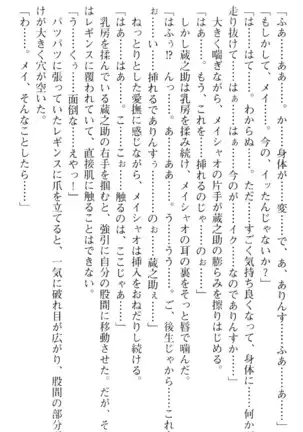 「ふあ……ああ……。か、身体が……変……で、あ、ありんす……ふぁ……あ……」
「もしかして、メイ……。今の、イッたんじゃないか？」
「は……はて。わからぬ……。ただ……すごく気持ち良くなって、身体に……何かが
走り抜けて……はぁ……はぁ……今のが……イク……なのでありんすか……」
　大きく喘ぎながら、メイシャオの片手が蔵之助の膨らみを擦りはじめる。
「はぁ……。もう、これを……挿れるのじゃ……のぉ……」
　しかし蔵之助は乳房を揉み続け、メイシャオの耳の裏をそっと唇で啄んだ。
「はふぅ!?　んっ……あ……ああ……う、ううう……。ご、後生じゃから……これ
を……お……い……挿れるでありんすぅ……のぉ……蔵之助ぇ……」
　ねっとりとした愛撫に感じながら、メイシャオは挿入をおねだりし続ける。
「はぁ……はぁ……。こ……こぉ、触るのは、ここじゃあ……」
　乳房を揉んでいる蔵之助の右手を掴むと、強引に自分の股間に移動させた。だが、そこ
はレギンスに覆われていて、直接肌に触ることはできない。
「う……くぅ……面倒な……えやっ！」
　パツパツに張っていたレギンスに爪を立てると、一気に破れ目が広がり、股間の部分だ
けが大きく穴が空いた。
「わ……。メイ、そんなことしたら……」